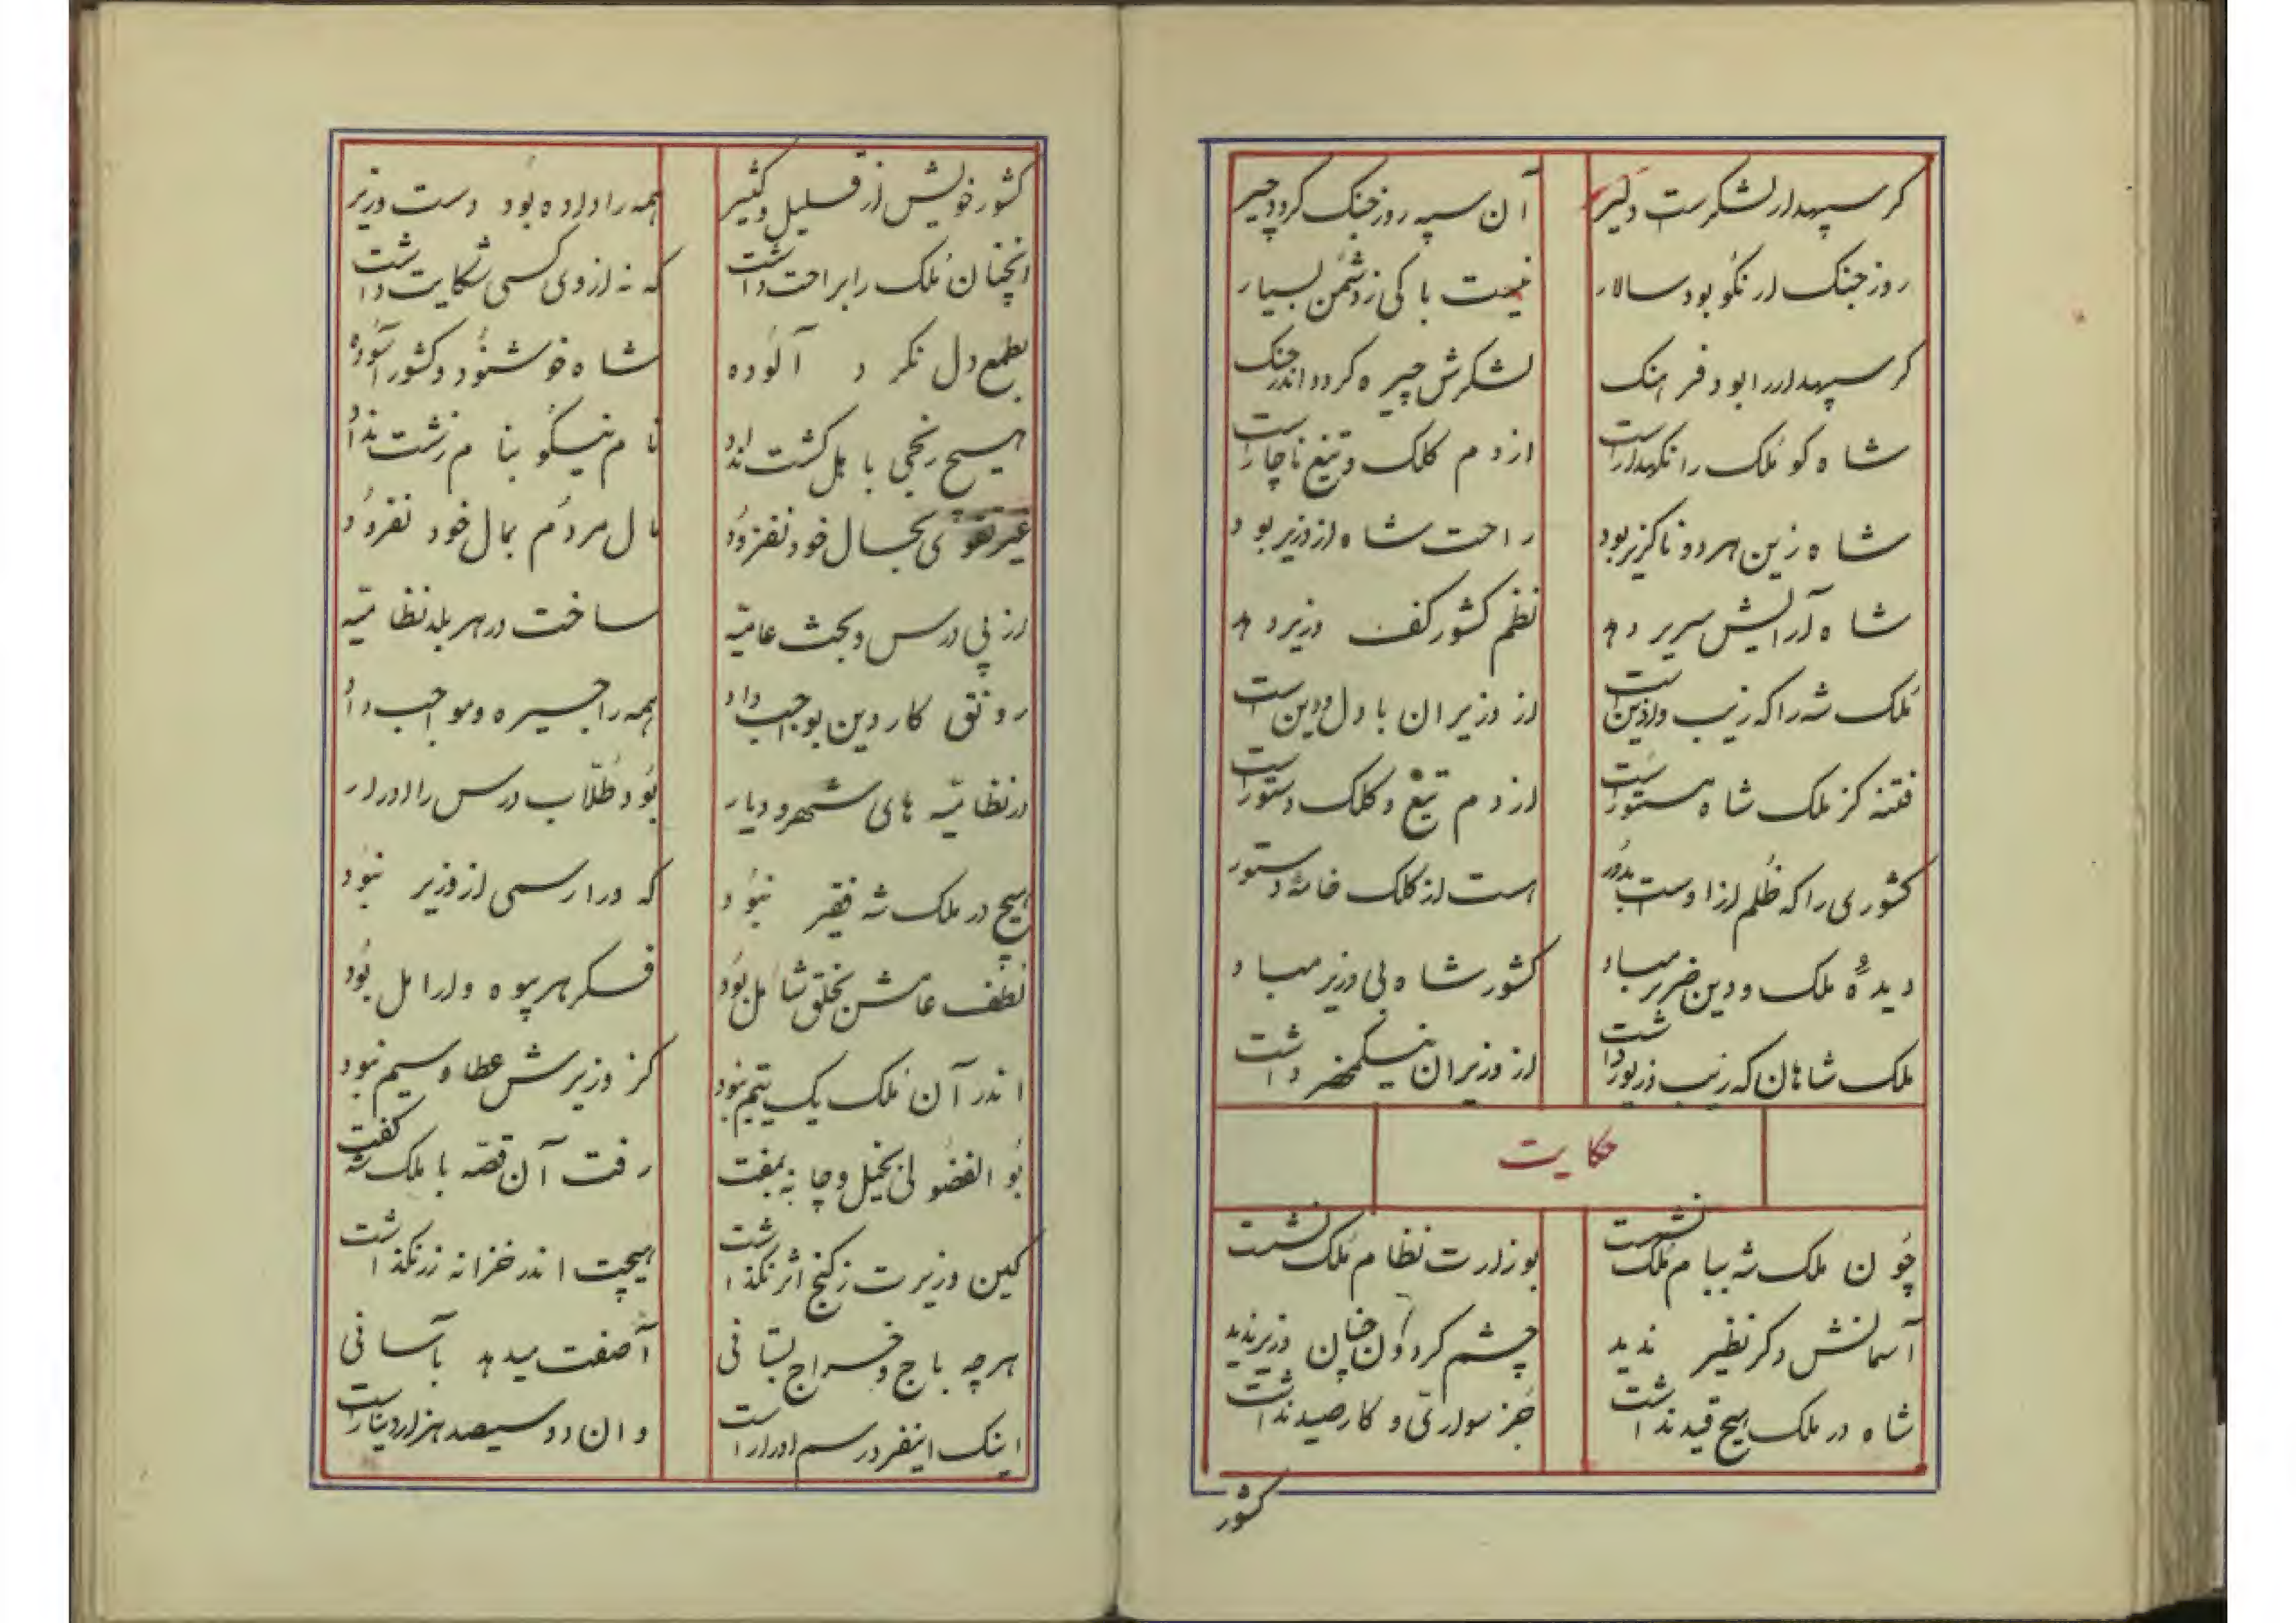 گر سپهدار لشکرست دلیر
آن سپه روز جنگ گردد چیر
روز جنگ ار نکو بود سالار
نیست باکی ز دشمن بسیار
گر سپهدار را بود فرهنگ
لشکرش چیره گردد اندر جنگ
شاه کو ملک را نگهدار است
از دم کلک و تیغ ناچار است
شاه زین هر دو ناگزیر بود
راحت شاه از وزیر بود
شاه آرایش سریر دهد
نظم کشور کف وزیر دهد
ملک شه را که زیب و آذین است
از وزیران با دل و دین است
فتنه کز ملک شاه مستور است
از دم تیغ و کلک دستور است
کشوری را که ظلم از او است بدور
است از کلک خامهٔ دستور
دیدهٔ ملک و دین ضریر مباد
کشور شاه بی وزیر مباد
ملک شاهان که زیب و زیور داشت
از وزیران نیکمحضر داشت
حکایت
چون ملک شه ببام ملک نشست
بوزارت نظام ملک نشست
آسمانش دگر نظیر ندید
چشم گردون چنان وزیر ندید
شاه در ملک هیچ قید نداشت
جز سواری و کار صید نداشت
کشور
کشور خویش از قلیل و کثیر
همه را داده بود دست وزیر
آنچنان ملک را براحت داشت
که نه از وی کسی شکایت داشت
بطمع دل نکرد آلوده
شاه خوشنود و کشور آسوده
هیچ رنجی باهل کشت نداد
نام نیکو بنام زشت نداد
غیر تقوی بحال خود نفزود
مال مردم بمال خود نفزود
از پی درس و بحث عامیّه
ساخت در هر بلد نظامیّه
رونق کار دین بواجب داد
همه را جیره و مواجب داد
در نظامیّه های شهر و دیار
بود طلّاب درس را ادرار
هیچ در ملک شه فقیر نبود
که ورا رسمی از وزیر نبود
لطف عامش بخلق شامل بود
فکر هر بیوه و ارامل بود
اندر آن ملک یک یتیم نبود
کز وزیرش عطا و سیم نبود
بو الفضولی بخیل و جا به بمفت
رفت آن قصه با ملک شه گفت
کین وزیرت ز گنج اثر نگذاشت
هیچت اندر خزانه زر نگذاشت
هر چه باج و خراج بستانی
آصفت میدهد بآسانی
اینک اینقدر رسم ادرار است
وان دو سیصد هزار دینار است